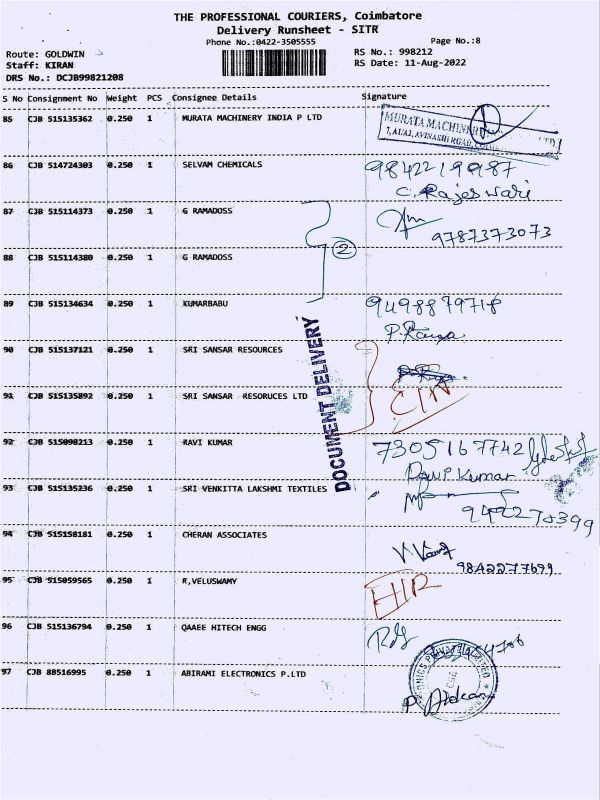 THE PROFESSIONAL COURIERS, Coimbatore
Delivery Runsheet - SITR
Phone No.:0422-3505555
Page No.:8
Route: GOLDWIN
Staff: KIRAN
DRS No.: DCJB99821208
RS No.: 998212
RS Date: 11-Aug-2022
S No Consignment No Weight PCS Consignee Details Signature
85 CJB 515135362 0.250 1 MURATA MACHINERY INDIA P LTD
MURATA MACHINERY LTD
86 CJB 514724303 0.250 1 SELVAM CHEMICALS 9842219987
C. Rajeswari
87 CJB 515114373 0.250 1 G RAMADOSS
9787373073
2
88 CJB 515114380 0.250 1 G RAMADOSS
89 CJB 515134634 0.250 1 KUMARBABU 9498879718
P. Ranga
DOCUMENT DELIVERY
90 CJB 515137121 0.250 1 SRI SANSAR RESOURCES
91 CJB 515135892 0.250 1 SRI SANSAR RESORUCES LTD
92 CJB 515098213 0.250 1 RAVI KUMAR 7305167742
Kumar
93 CJB 515135236 0.250 1 SRI VENKITTA LAKSHMI TEXTILES
94 CJB 515158181 0.250 1 CHERAN ASSOCIATES
95 CJB 515059565 0.250 1 R,VELUSWAMY
96 CJB 515136794 0.250 1 QAAEE HITECH ENGG
97 CJB 88516995 0.250 1 ABIRAMI ELECTRONICS P.LTD